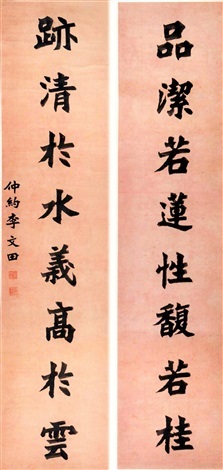 品潔若蓮性馥若桂
跡清於水義高於雲
仲約李文田